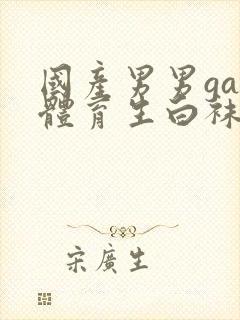 國產男男ga
體育生白袜
宋廣生